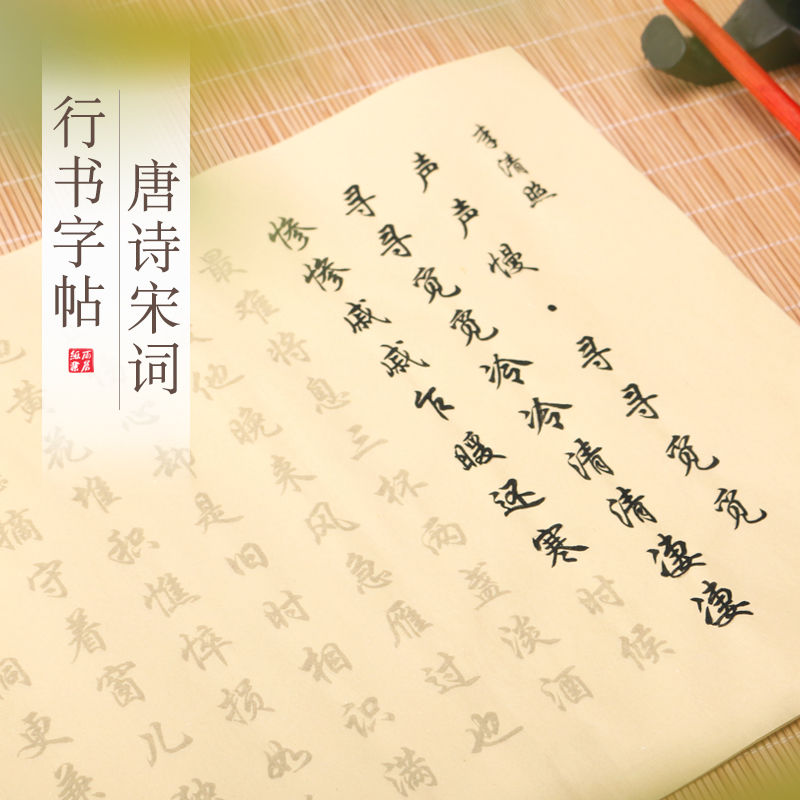 唐诗宋词
行书字帖
李清照
声声慢·寻寻觅觅
寻寻觅觅冷冷清清凄凄
惨惨戚戚乍暖还寒时候
最难将息三杯两盏淡酒
他晚来风急雁过也
心却是旧时相识满
黄花堆积憔悴损如
摘守着窗儿独
桐更兼